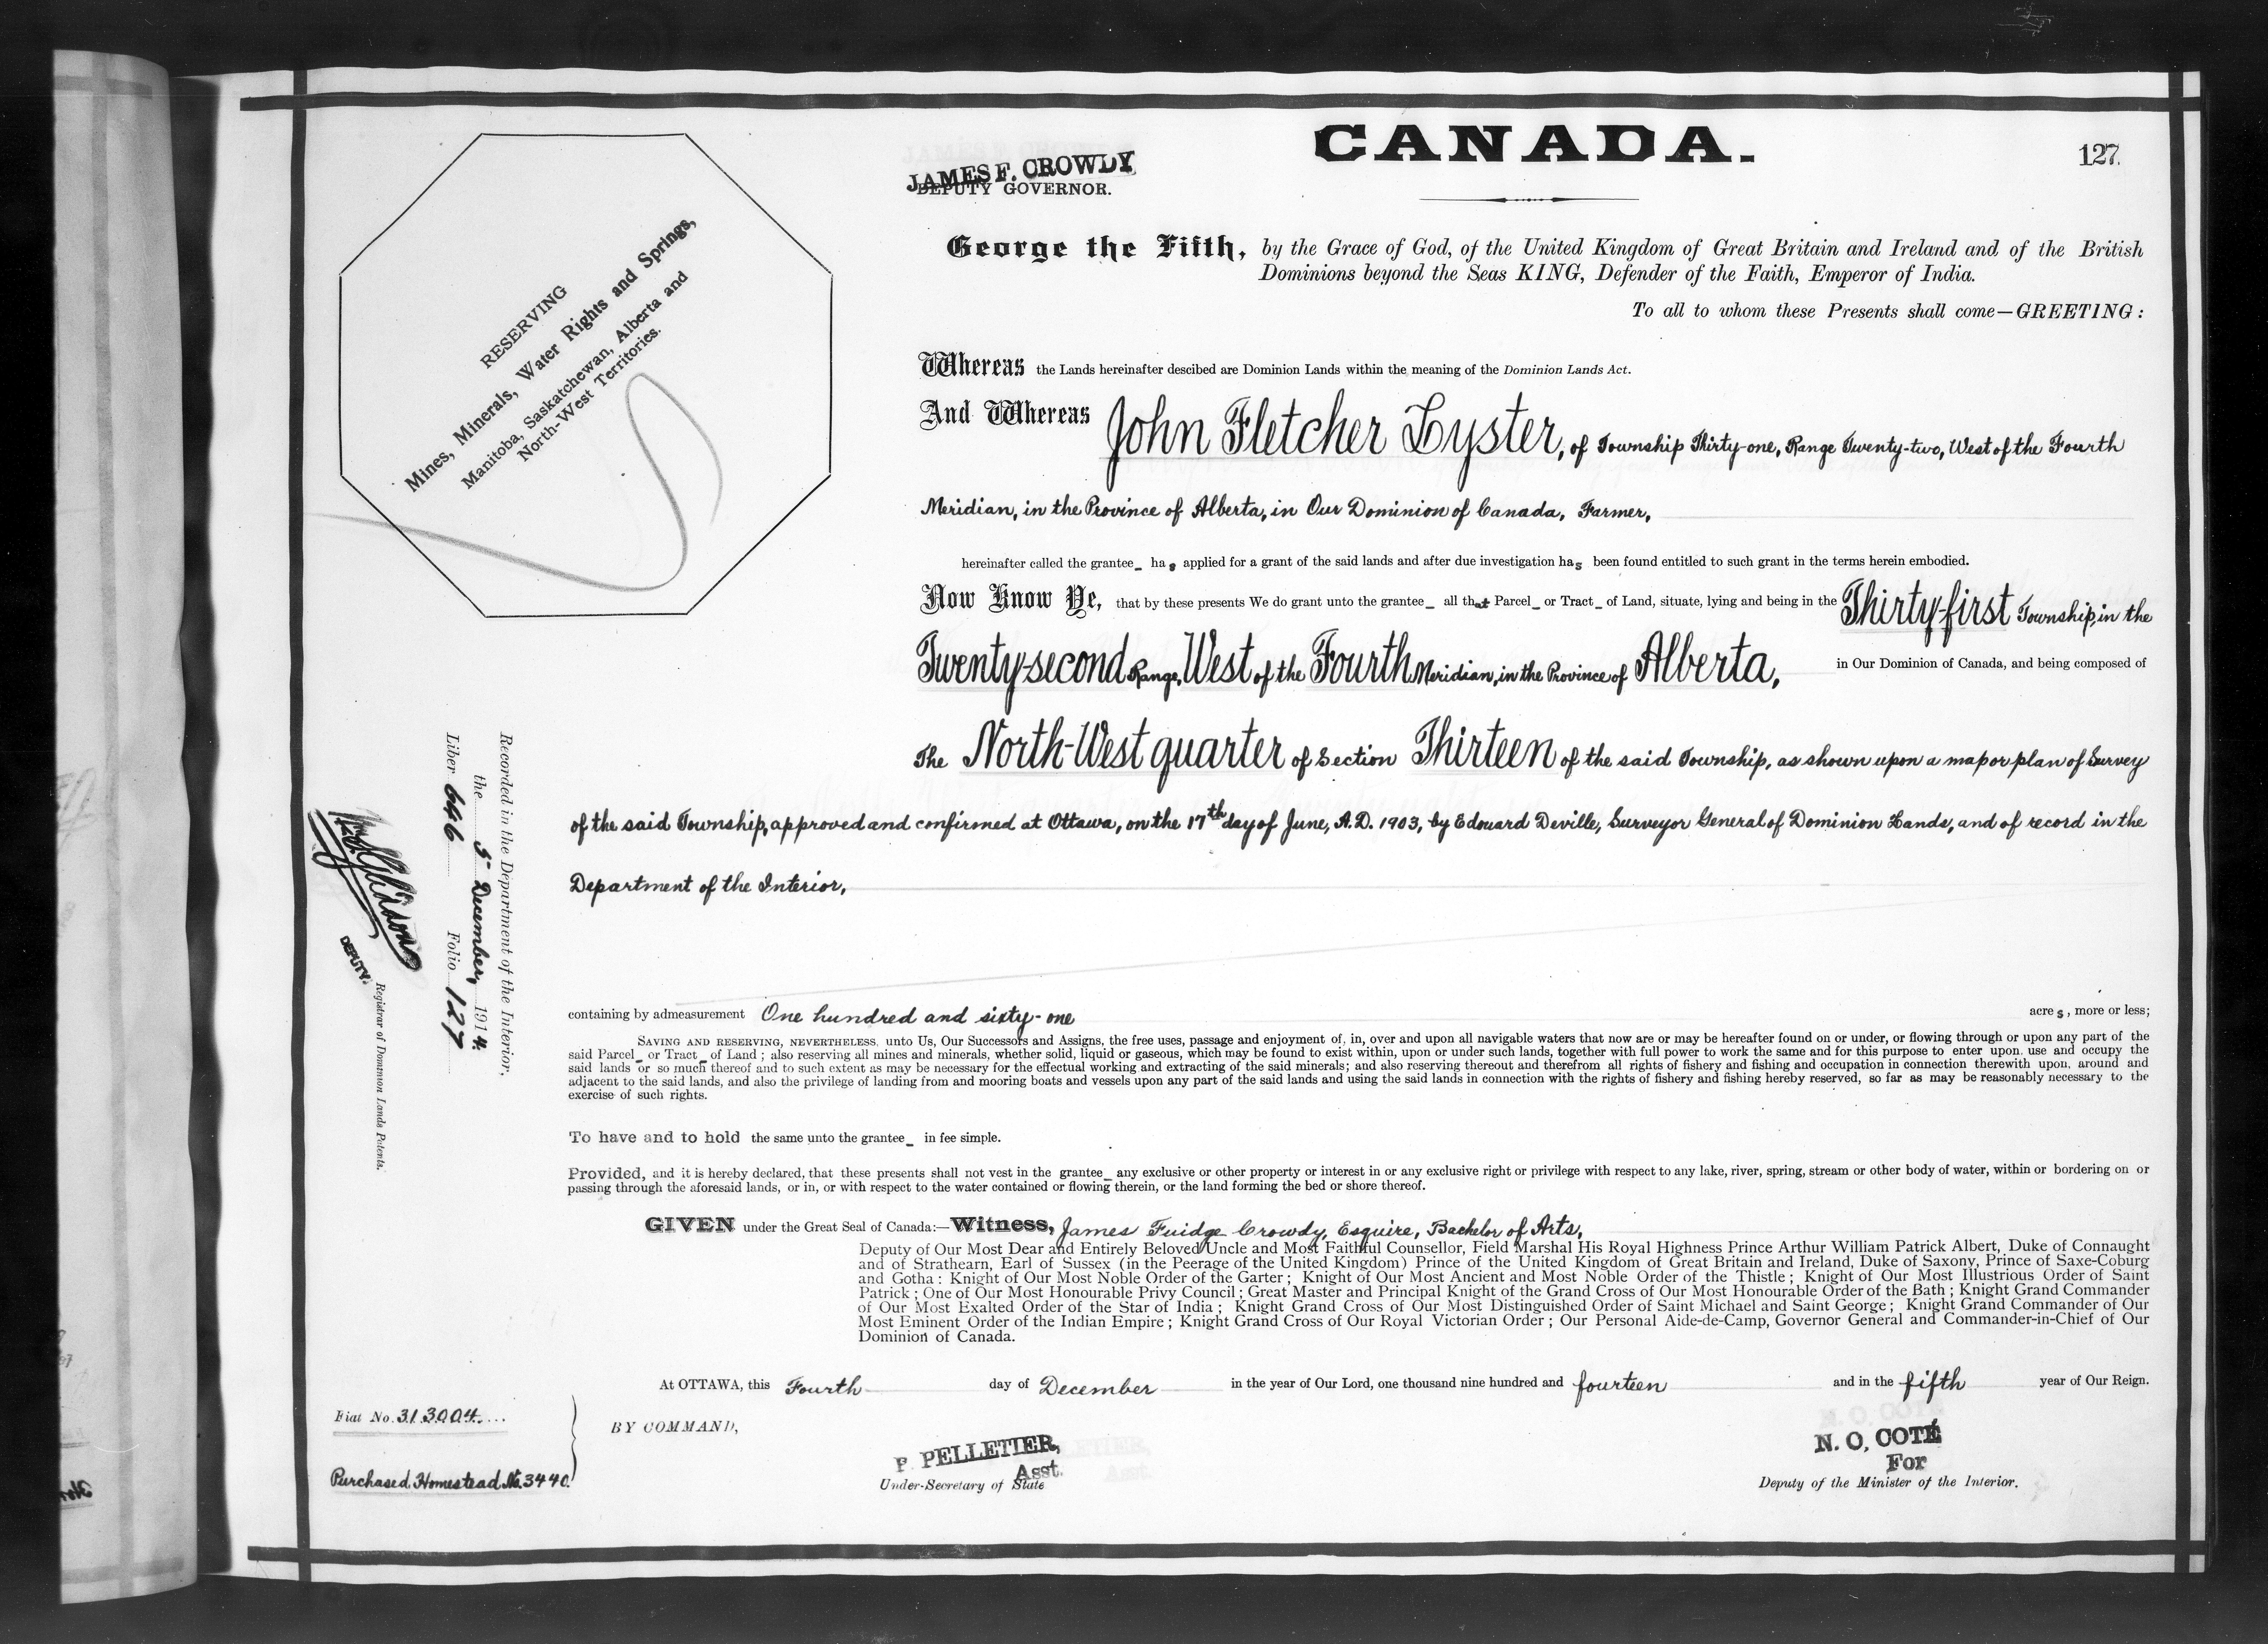 CANADA.
127.
JAMES F. CROWDY
DEPUTY GOVERNOR.
RESERVING
Mines, Minerals, Water Rights and Springs,
Manitoba, Saskatchewan, Alberta and
North-West Territories.
George the Fifth, by the Grace of God, of the United Kingdom of Great Britain and Ireland and of the British
Dominions beyond the Seas KING, Defender of the Faith, Emperor of India.
To all to whom these Presents shall come—GREETING:
Whereas the Lands hereinafter descibed are Dominion Lands within the meaning of the Dominion Lands Act.
And Whereas John Fletcher Lyster, of Township Thirty-one, Range Twenty-two, West of the Fourth
Meridian, in the Province of Alberta, in Our Dominion of Canada, Farmer,
hereinafter called the grantee_ has applied for a grant of the said lands and after due investigation has been found entitled to such grant in the terms herein embodied.
Now Know Ye, that by these presents We do grant unto the grantee_ all that Parcel_ or Tract_ of Land, situate, lying and being in the Thirty-first Township, in the
Twenty-second Range, West of the Fourth Meridian, in the Province of Alberta, in Our Dominion of Canada, and being composed of
The North-West quarter of Section Thirteen of the said Township, as shown upon a map or plan of Survey
of the said Township, approved and confirmed at Ottawa, on the 17th day of June, A.D. 1903, by Edouard Deville, Surveyor General of Dominion Lands, and of record in the
Department of the Interior,
containing by admeasurement One hundred and sixty-one acres, more or less;
SAVING AND RESERVING, NEVERTHELESS, unto Us, Our Successors and Assigns, the free uses, passage and enjoyment of, in, over and upon all navigable waters that now are or may be hereafter found on or under, or flowing through or upon any part of the
said Parcel_ or Tract_ of Land; also reserving all mines and minerals, whether solid, liquid or gaseous, which may be found to exist within, upon or under such lands, together with full power to work the same and for this purpose to enter upon, use and occupy the
said lands or so much thereof and to such extent as may be necessary for the effectual working and extracting of the said minerals; and also reserving thereout and therefrom all rights of fishery and fishing and occupation in connection therewith upon, around and
adjacent to the said lands, and also the privilege of landing from and mooring boats and vessels upon any part of the said lands and using the said lands in connection with the rights of fishery and fishing hereby reserved, so far as may be reasonably necessary to the
exercise of such rights.
To have and to hold the same unto the grantee_ in fee simple.
Provided, and it is hereby declared, that these presents shall not vest in the grantee_ any exclusive or other property or interest in or any exclusive right or privilege with respect to any lake, river, spring, stream or other body of water, within or bordering on or
passing through the aforesaid lands, or in, or with respect to the water contained or flowing therein, or the land forming the bed or shore thereof.
GIVEN under the Great Seal of Canada:—Witness, James Fuidge Crowdy, Esquire, Bachelor of Arts,
Deputy of Our Most Dear and Entirely Beloved Uncle and Most Faithful Counsellor, Field Marshal His Royal Highness Prince Arthur William Patrick Albert, Duke of Connaught
and of Strathearn, Earl of Sussex (in the Peerage of the United Kingdom) Prince of the United Kingdom of Great Britain and Ireland, Duke of Saxony, Prince of Saxe-Coburg
and Gotha: Knight of Our Most Noble Order of the Garter; Knight of Our Most Ancient and Most Noble Order of the Thistle; Knight of Our Most Illustrious Order of Saint
Patrick; One of Our Most Honourable Privy Council; Great Master and Principal Knight of the Grand Cross of Our Most Honourable Order of the Bath; Knight Grand Commander
of Our Most Exalted Order of the Star of India; Knight Grand Cross of Our Most Distinguished Order of Saint Michael and Saint George; Knight Grand Commander of Our
Most Eminent Order of the Indian Empire; Knight Grand Cross of Our Royal Victorian Order; Our Personal Aide-de-Camp, Governor General and Commander-in-Chief of Our
Dominion of Canada.
At OTTAWA, this Fourth day of December in the year of Our Lord, one thousand nine hundred and fourteen and in the fifth year of Our Reign.
BY COMMAND,
P. PELLETIER,
Asst.
Under-Secretary of State
N. O. COTÉ
For
Deputy of the Minister of the Interior.
Fiat No. 313004
Purchased Homestead No. 3440.
Recorded in the Department of the Interior,
the 5th December, 1914.
Liber 646 Folio 127
DEPUTY.
Registrar of Dominion Lands Patents.